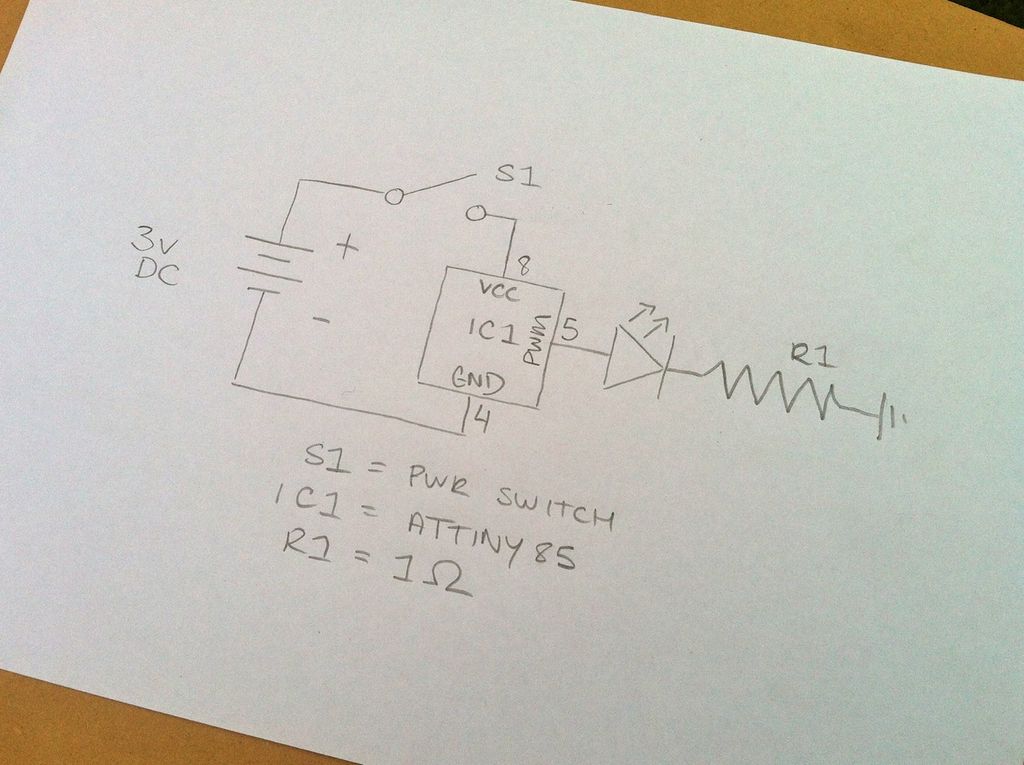 S1
3V
DC
+
-
8
VCC
IC1
PWM
5
GND
4
R1
S1 = PWR SWITCH
IC1 = ATTINY85
R1 = 1Ω